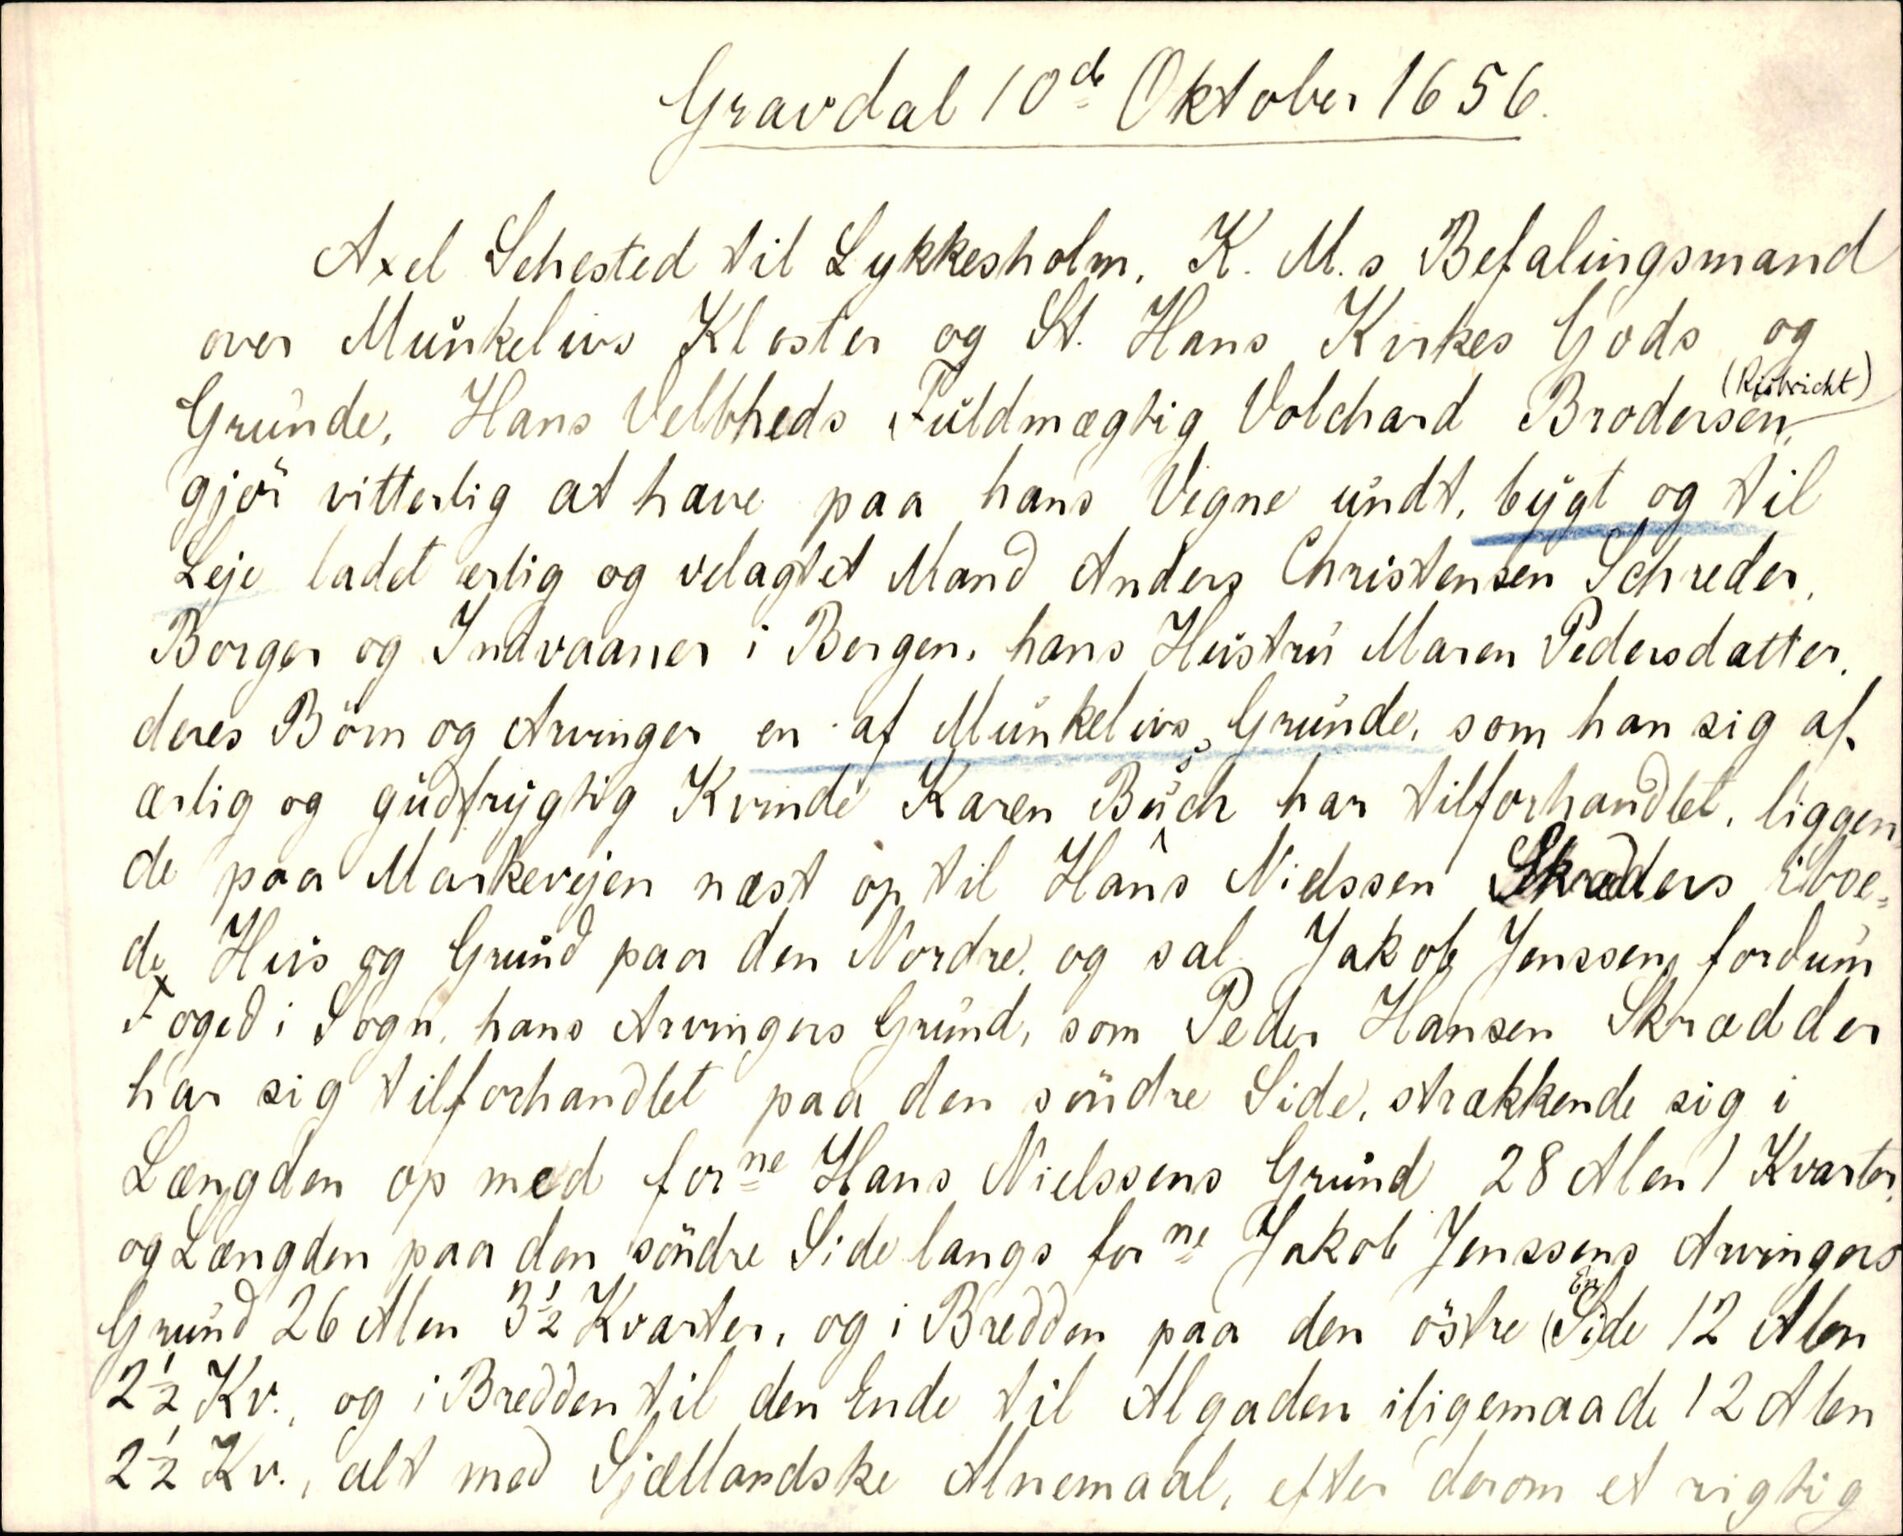 Gravdal 10de Oktober 1656.
Axel Sehested til Lykkesholm, K. M.s Befalingsmand
over Munkelivs Kloster og St. Hans Kirkes Gods og
Grunde, Hans Velbheds Fuldmægtig Volchard Brodersen, (Risbricht)
gjör vitterlig at have paa hans Vegne undt, bygt og til
Leje ladet ærlig og velagtet Mand Anders Christensen Schreder,
Borger og Indvaaner i Bergen, hans Hustru Maren Pedersdatter,
deres Börn og Arvinger en af Munkelivs Grunde, som han sig af
ærlig og gudfrygtig Kvinde Karen Buch har tilforhandlet, liggen-
de paa Markevejen næst op til Hans Nielssen Skræders iboe-
de Hus og Grund paa den Nordre, og sal. Jakob Jenssen, fordum
Foged i Sogn, hans Arvingers Grund, som Peder Hansen Skrædder
har sig tilforhandlet paa den söndre Side, strækkende sig i
Længden op med forne Hans Nielssens Grund 28 Alen 1 Kvarter,
og Længden paa den söndre Side langs forne Jakob Jenssens Arvingers
Grund 26 Alen 3½ Kvarter, og i Bredden paa den östre (Side En 12 Alen
2½ Kv., og i Bredden til den Ende til Algaden iligemaade 12 Alen
2½ Kv., alt med Sjællandske Alnemaal, efter derom et rigtig